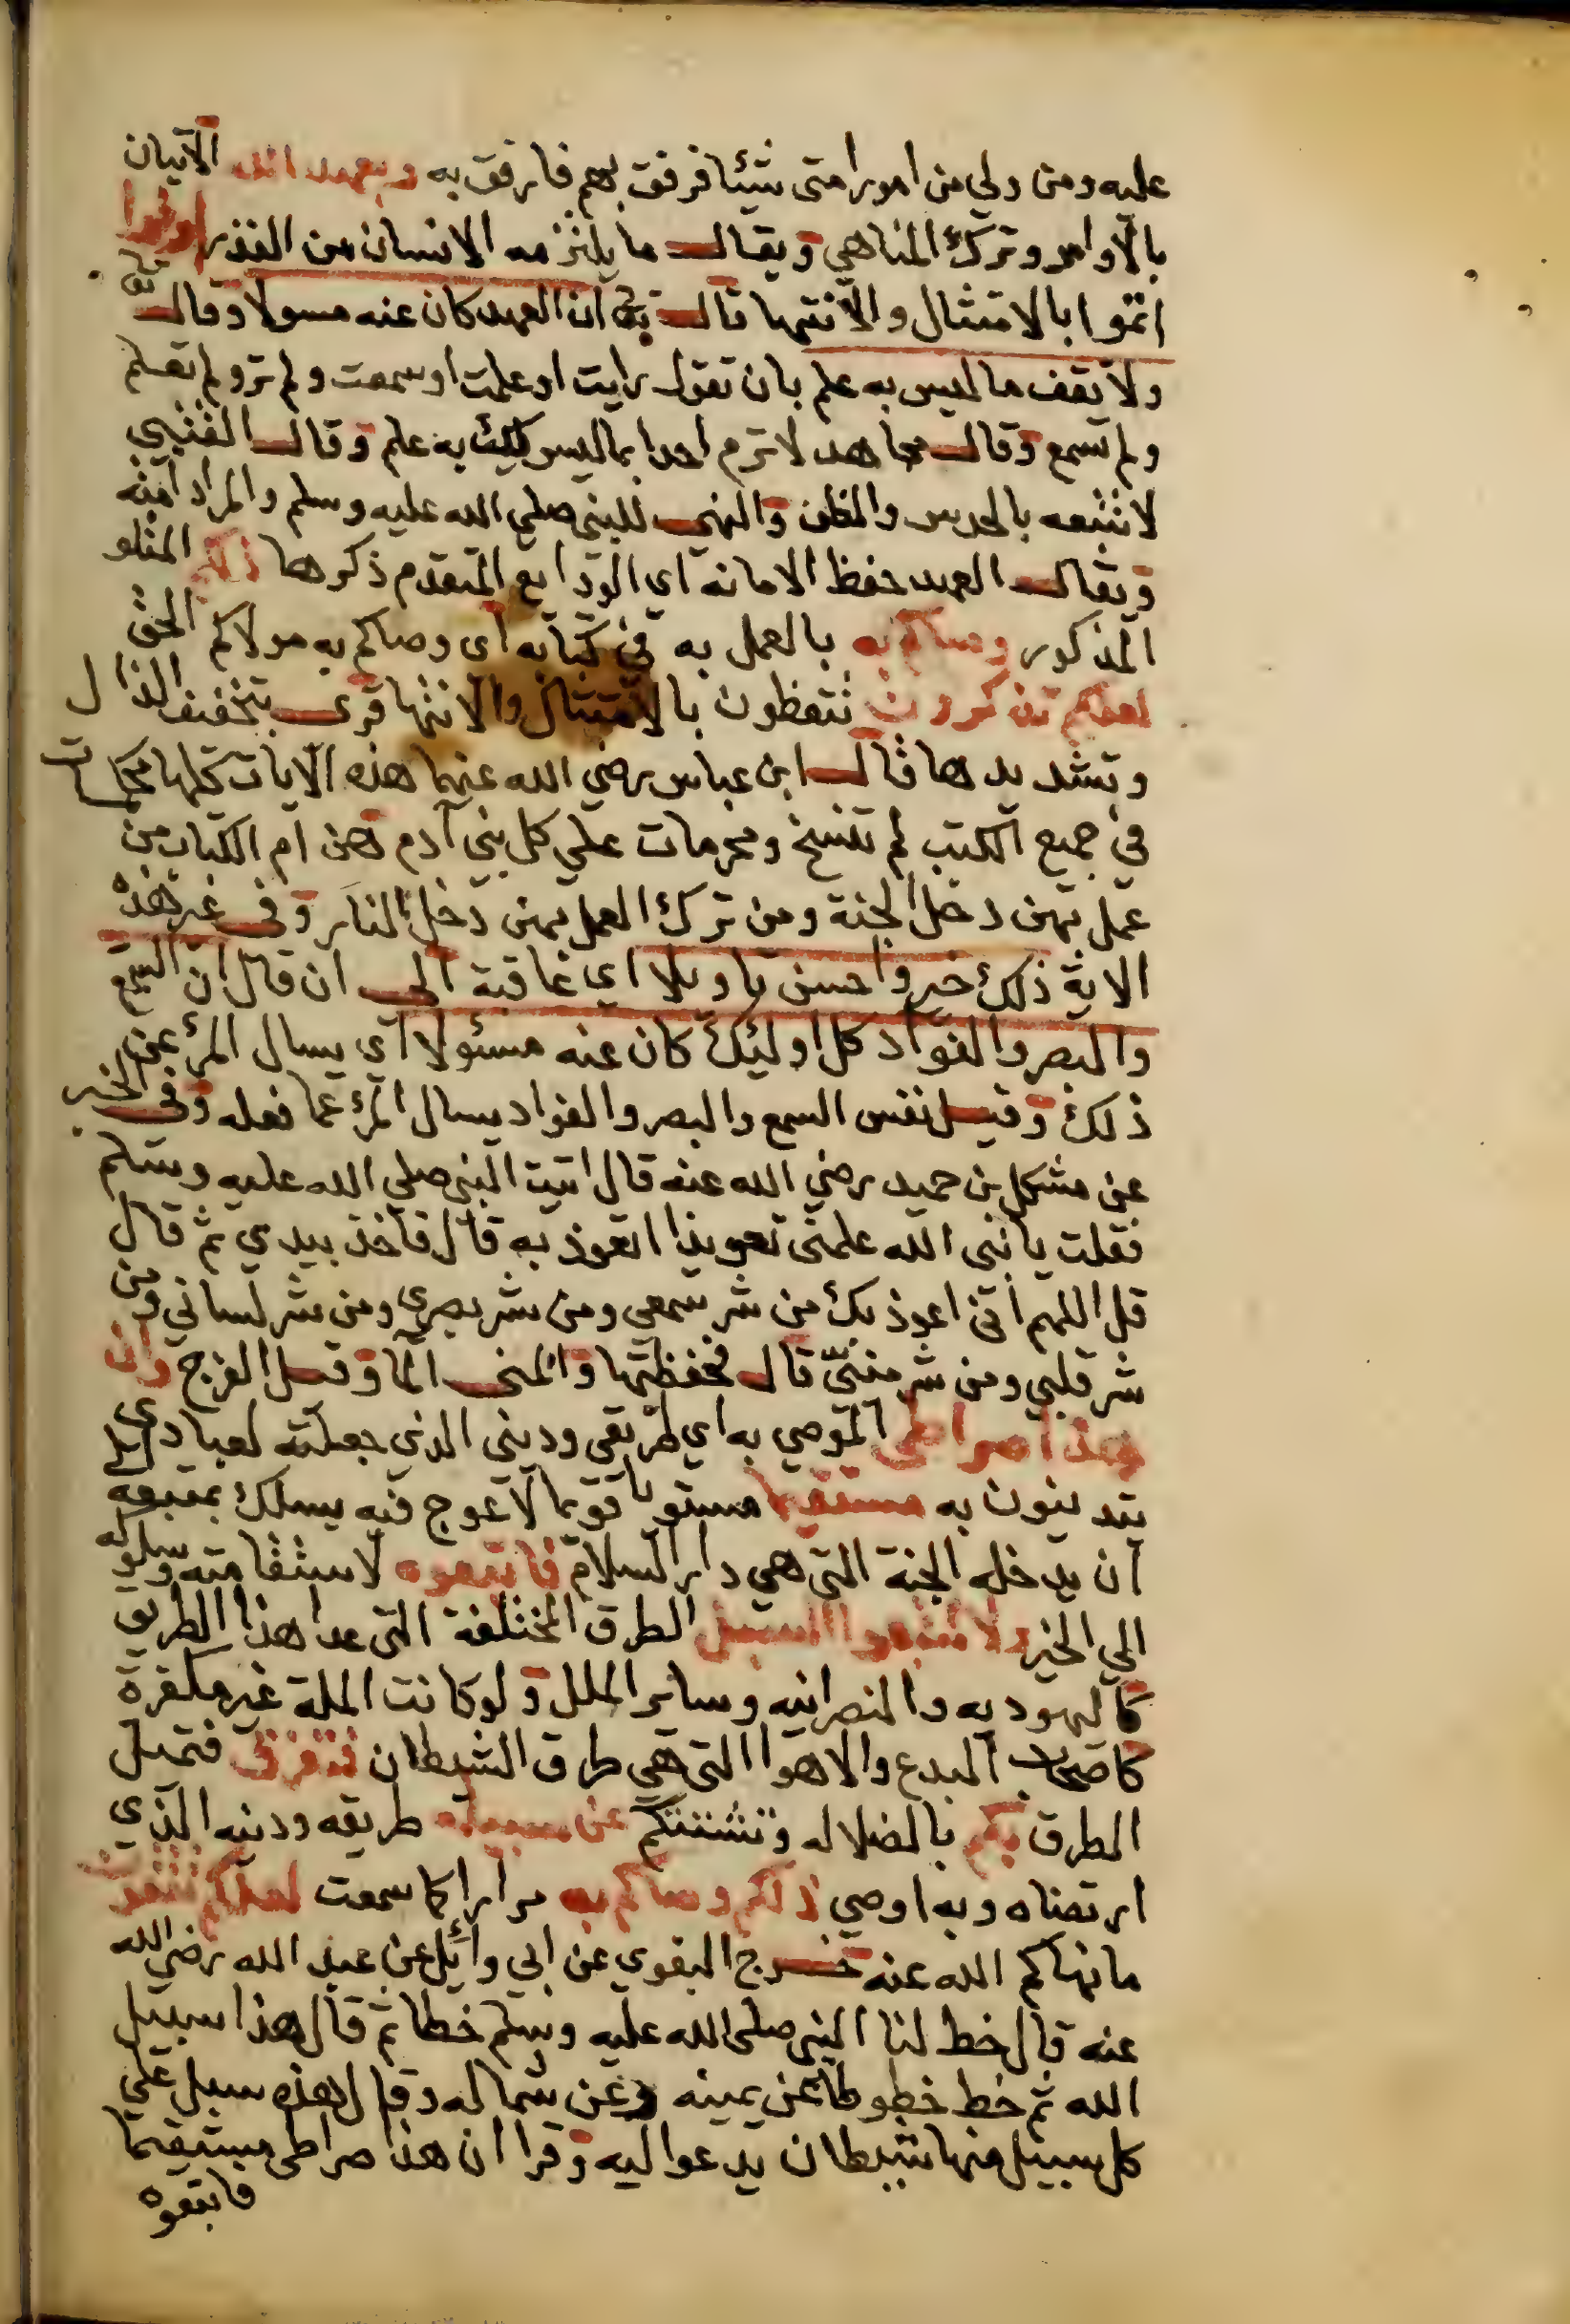 عليه ومن ولي من امور امتى شيئا فرفق بهم فارفق به وبعهد الله الاتيان
بالاوامر وترك المناهي ويقال ما يلتزمه الانسان من النذر اوفوا
اتموا بالامتثال والانتها قال تع ان العهد كان عنه مسولا وقال تع
ولا تقف ما ليس به علم بان تقول رايت او علمت او سمعت ولم تر ولم تعلم
ولم تسمع وقال مجاهد لا ترم احدا بما ليس لك به علم وقال القتيبي
لا تتبعه بالحدس والظن والنهي للنبي صلي الله عليه وسلم والمراد امته
ويقال العهد حفظ الامانه اي الودايع المتقدم ذكرها ذلكم المتلو
المذكور وصاكم به بالعمل به في كتابه اى وصاكم به مولاكم الحق
لعلكم تذكرون تتعظون بالامتثال والانتها قرى بتخفيف الذال
وتشديدها قال ابن عباس رضي الله عنهما هذه الآيات كلها محكمات
في جميع الكتب لم تنسخ ومحرمات علي كل بني آدم وهن ام الكتاب من
عمل بهن دخل الجنة ومن ترك العمل بهن دخل النار وفى غير هذه
الاية ذلك خير واحسن تاويلا اي عاقبة الي ان قال ان السمع
والبصر والفواد كل اوليك كان عنه مسئولا اي يسال المرء عن
ذلك وقيل نفس السمع والبصر والفواد يسال المرء عما فعله وفى الخبر
عن مشكل بن حميد رضي الله عنه قال اتيت النبي صلي الله عليه وسلم
فقلت يا نبى الله علمنى تعويذا اتعوذ به قال فاخذ بيدي ثم قال
قل اللهم انى اعوذ بك من شر سمعي ومن شر بصري ومن شر لساني ومن
شر قلبي ومن شر منيّي قال فحفظتها والمنى الما وقيل الفرج وان
هذا صراطى الموصي به اي طريقي وديني الذي جعلته لعبادي
يتدينون به مستقيما مستويا قويما لا عوج فيه يسلك بمتبعه
ان يدخله الجنة التى هي دار السلام فاتبعوه لاستقامته وسلوكه
الي الخير ولا تتبعوا السبل الطرق المختلفة التى عدا هذا الطريق
كاليهوديه والنصرانيه وساير الملل ولو كانت الملة غير مكفرة
كاصحاب البدع والاهوا التى هي طرق الشيطان فتفرق فتميل
الطرق بكم بالضلاله وتشتتكم عن سبيله طريقه ودينه الذي
ارتضاه وبه اوصي ذلكم وصاكم به مرارا كما سمعت لعلكم تتقون
ما نهاكم الله عنه خرج البغوي عن ابي وائل عن عبد الله رضي الله
عنه قال خط لنا النبى صلى الله عليه وسلم خطا ثم قال هذا سبيل
الله ثم خط خطوطا عن يمينه وعن شماله وقال هذه سبل علي
كل سبيل منها شيطان يدعوا اليه وقرا ان هذا صراطى مستقيما
فاتبعوه